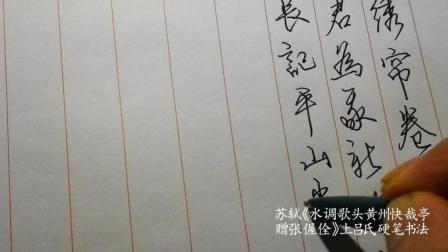 绣帘卷
君為我新
長記平山
苏轼《水调歌头黄州快裁亭
赠张偓佺》上吕氏硬笔书法